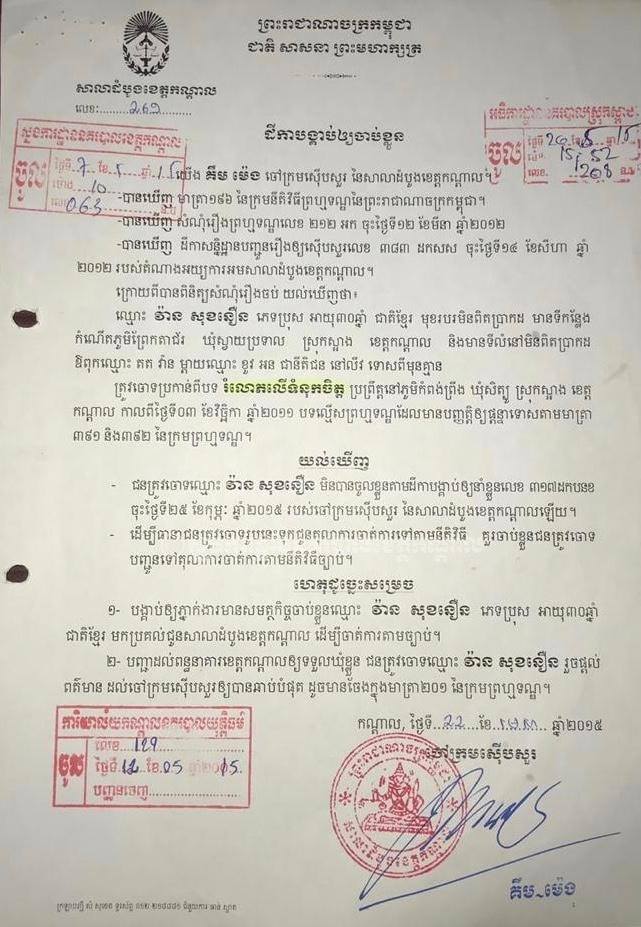 ព្រះរាជាណាចក្រកម្ពុជា
ជាតិ សាសនា ព្រះមហាក្សត្រ
សាលាដំបូងខេត្តកណ្តាល
លេខ:
ដីកាបង្គាប់ឲ្យចាប់ខ្លួន
ស្នងការដ្ឋាននគរបាលខេត្តកណ្តាល
ចូល
អធិការដ្ឋាននគរបាលស្រុកស្អាង
ចូល
យើង គឹម ម៉េង ចៅក្រមស៊ើបសួរ នៃសាលាដំបូងខេត្តកណ្តាល។
-បានឃើញ មាត្រា១៩៦ នៃក្រមនីតិវិធីព្រហ្មទណ្ឌនៃព្រះរាជាណាចក្រកម្ពុជា។
-បានឃើញ សំណុំរឿងព្រហ្មទណ្ឌលេខ ២១២ អក ចុះថ្ងៃទី១២ ខែមីនា ឆ្នាំ២០១២
-បានឃើញ ដីកាសន្និដ្ឋានបញ្ជូនរឿងឲ្យស៊ើបសួរលេខ ៣៨៣ ដកសស ចុះថ្ងៃទី១៤ ខែសីហា ឆ្នាំ
២០១២ របស់តំណាងអយ្យការអមសាលាដំបូងខេត្តកណ្តាល។
ក្រោយពីបានពិនិត្យសំណុំរឿងចប់ យល់ឃើញថា៖
ឈ្មោះ វ៉ាន សុខនឿន ភេទប្រុស អាយុ៣០ឆ្នាំ ជាតិខ្មែរ មុខរបរមិនពិតប្រាកដ មានទីកន្លែង
កំណើតភូមិព្រែកតាជ័រ ឃុំស្វាយប្រទាល ស្រុកស្អាង ខេត្តកណ្តាល និងមានទីលំនៅមិនពិតប្រាកដ
ឪពុកឈ្មោះ តត វ៉ាន ម្តាយឈ្មោះ ខួវ អន ជានីតិជន នៅលីវ ទោសពីមុនគ្មាន
ត្រូវចោទប្រកាន់ពីបទ រំលោភលើទំនុកចិត្ត ប្រព្រឹត្តនៅភូមិកំពង់ព្រីង ឃុំសិត្បូ ស្រុកស្អាង ខេត្ត
កណ្តាល កាលពីថ្ងៃទី០៣ ខែវិច្ឆិកា ឆ្នាំ២០១១ បទល្មើសព្រហ្មទណ្ឌដែលមានបញ្ញត្តិឲ្យផ្តន្ទាទោសតាមមាត្រា
៣៩១ និង៣៩២ នៃក្រមព្រហ្មទណ្ឌ។
យល់ឃើញ
- ជនត្រូវចោទឈ្មោះ វ៉ាន សុខនឿន មិនបានចូលខ្លួនតាមដីកាបង្គាប់ឲ្យនាំខ្លួនលេខ ៣១៧ដកបនខ
ចុះថ្ងៃទី២៥ ខែកុម្ភៈ ឆ្នាំ២០១៥ របស់ចៅក្រមស៊ើបសួរ នៃសាលាដំបូងខេត្តកណ្តាលឡើយ។
- ដើម្បីធានាជនត្រូវចោទរូបនេះទុកជូនតុលាការចាត់ការទៅតាមនីតិវិធី គួរចាប់ខ្លួនជនត្រូវចោទ
បញ្ជូនទៅតុលាការចាត់ការតាមនីតិវិធីច្បាប់។
ហេតុដូច្នេះសម្រេច
១- បង្គាប់ឲ្យភ្នាក់ងារមានសមត្ថកិច្ចចាប់ខ្លួនឈ្មោះ វ៉ាន សុខនឿន ភេទប្រុស អាយុ៣០ឆ្នាំ
ជាតិខ្មែរ មកប្រគល់ជូនសាលាដំបូងខេត្តកណ្តាល ដើម្បីចាត់ការតាមច្បាប់។
២- បញ្ជាដល់ពន្ធនាគារខេត្តកណ្តាលឲ្យទទួលឃុំខ្លួន ជនត្រូវចោទឈ្មោះ វ៉ាន សុខនឿន រួចផ្តល់
ព័ត៌មាន ដល់ចៅក្រមស៊ើបសួរឲ្យបានឆាប់បំផុត ដូចមានចែងក្នុងមាត្រា២០១ នៃក្រមព្រហ្មទណ្ឌ។
កណ្តាល, ថ្ងៃទី 22 ខែ ឆ្នាំ២០១៥
ចៅក្រមស៊ើបសួរ
ចូល
លេខ 129
ថ្ងៃទី 12 ខែ 05 ឆ្នាំ2015
បញ្ជូនចេញ
គឹម ម៉េង